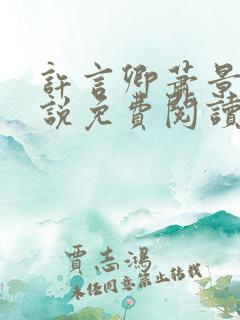 許言卿蕭景
說免費閱讀
賈志鴻
未經同意禁止轉載